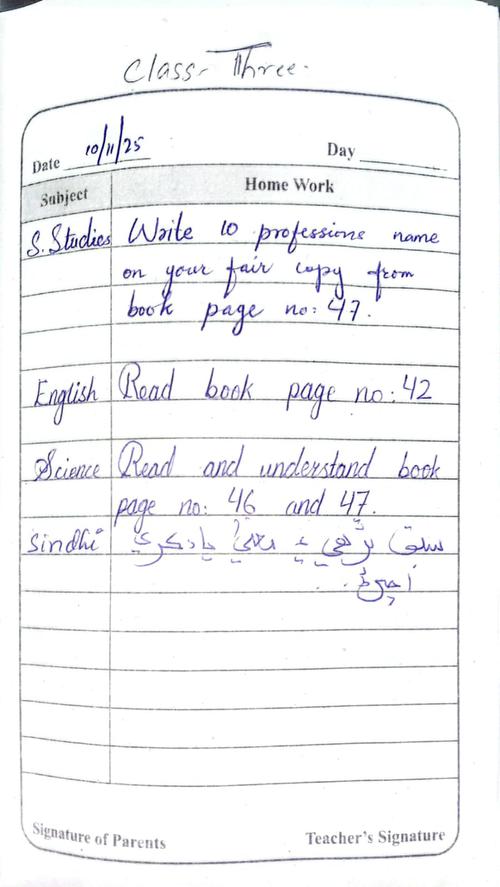 Class- Three-
Date 10/11/25 Day
Subject Home Work
S. Studies Write 10 professions name
on your fair copy from
book page no: 47.
English Read book page no: 42
Science Read and understand book
page no: 46 and 47.
Sindhi سبق پڙهي ۽ معنيٰ ياد ڪري
اچڻ.
Signature of Parents Teacher's Signature